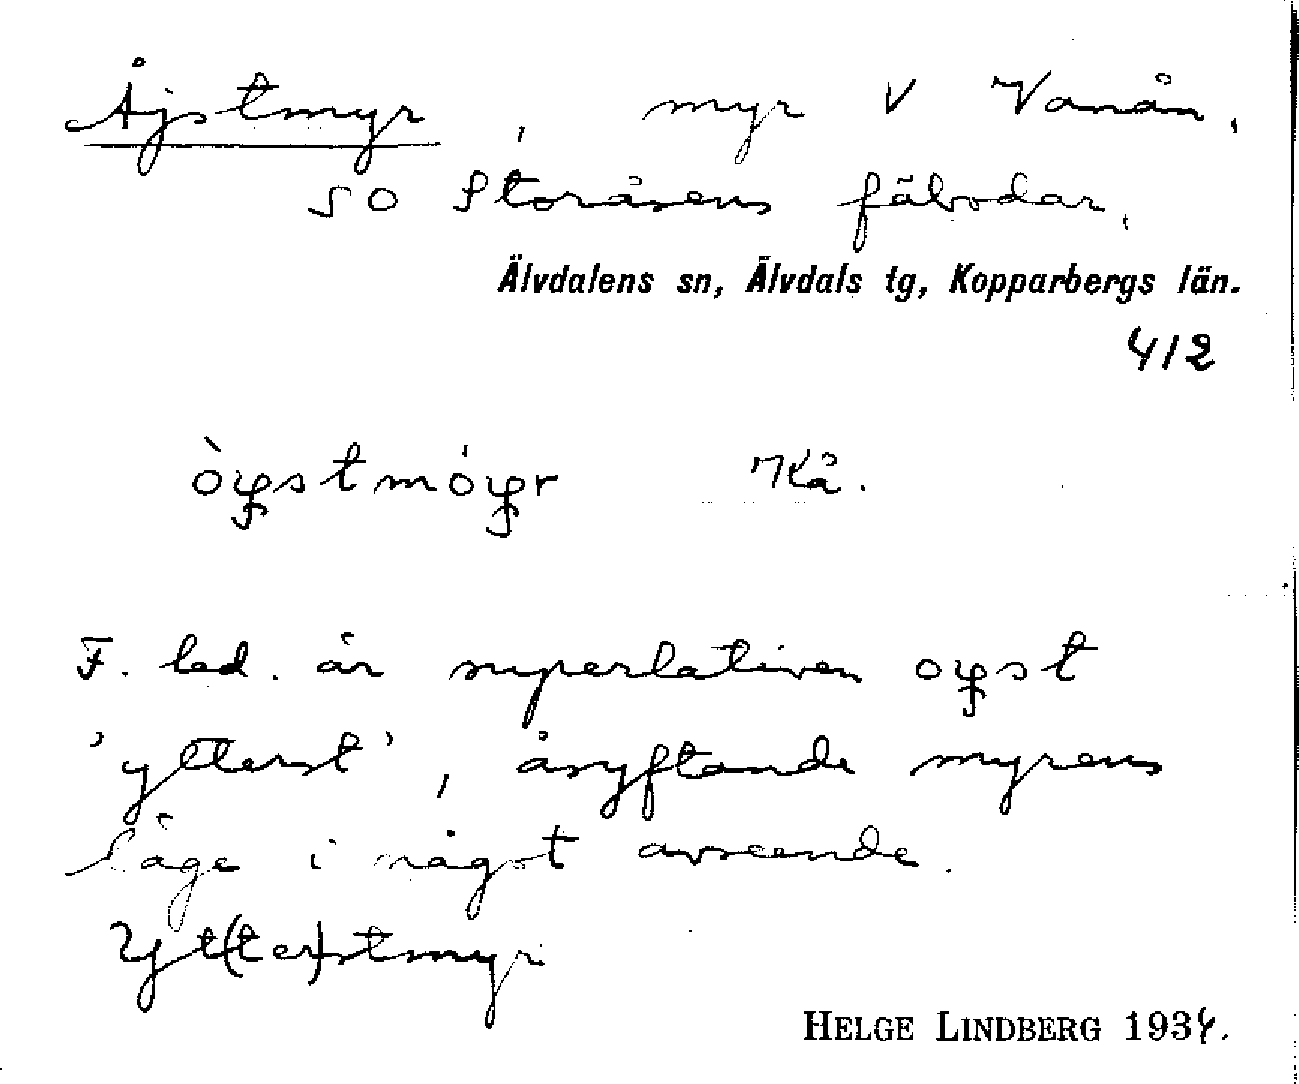 Åjstmyr, myr V Vanån,
SO Storåsens fäbodar.
Älvdalens sn, Älvdals tg, Kopparbergs län.
412
Kå.
F. led. är superlativen
'ytterst', åsyftande myrens
läge i något avseende.
Yt(ter)stmyr
HELGE LINDBERG 1934.